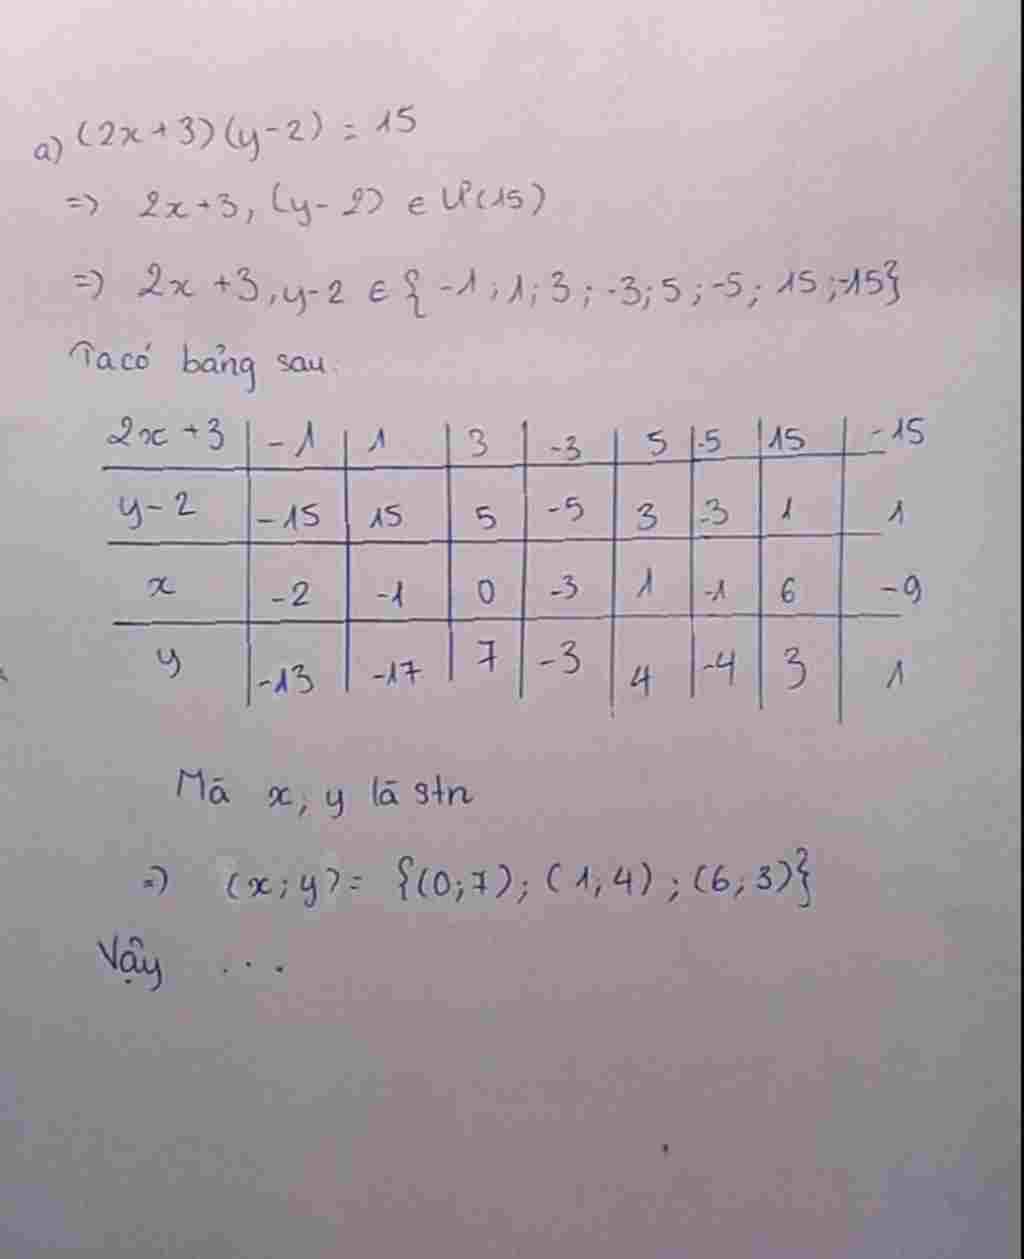 a) (2x+3)(y-2) = 15
=> 2x+3, (y-2) ∈ Ư(15)
=> 2x+3, y-2 ∈ {-1; 1; 3; -3; 5; -5; 15; -15}
Ta có bảng sau:
2x+3 | -1 | 1 | 3 | -3 | 5 | -5 | 15 | -15
y-2 | -15 | 15 | 5 | -5 | 3 | -3 | 1 | 1
x | -2 | -1 | 0 | -3 | 1 | -1 | 6 | -9
y | -13 | -17 | 7 | -3 | 4 | -4 | 3 | 1
Mà x, y là stn
=> (x; y) = {(0; 7); (1, 4); (6; 3)}
Vậy ...